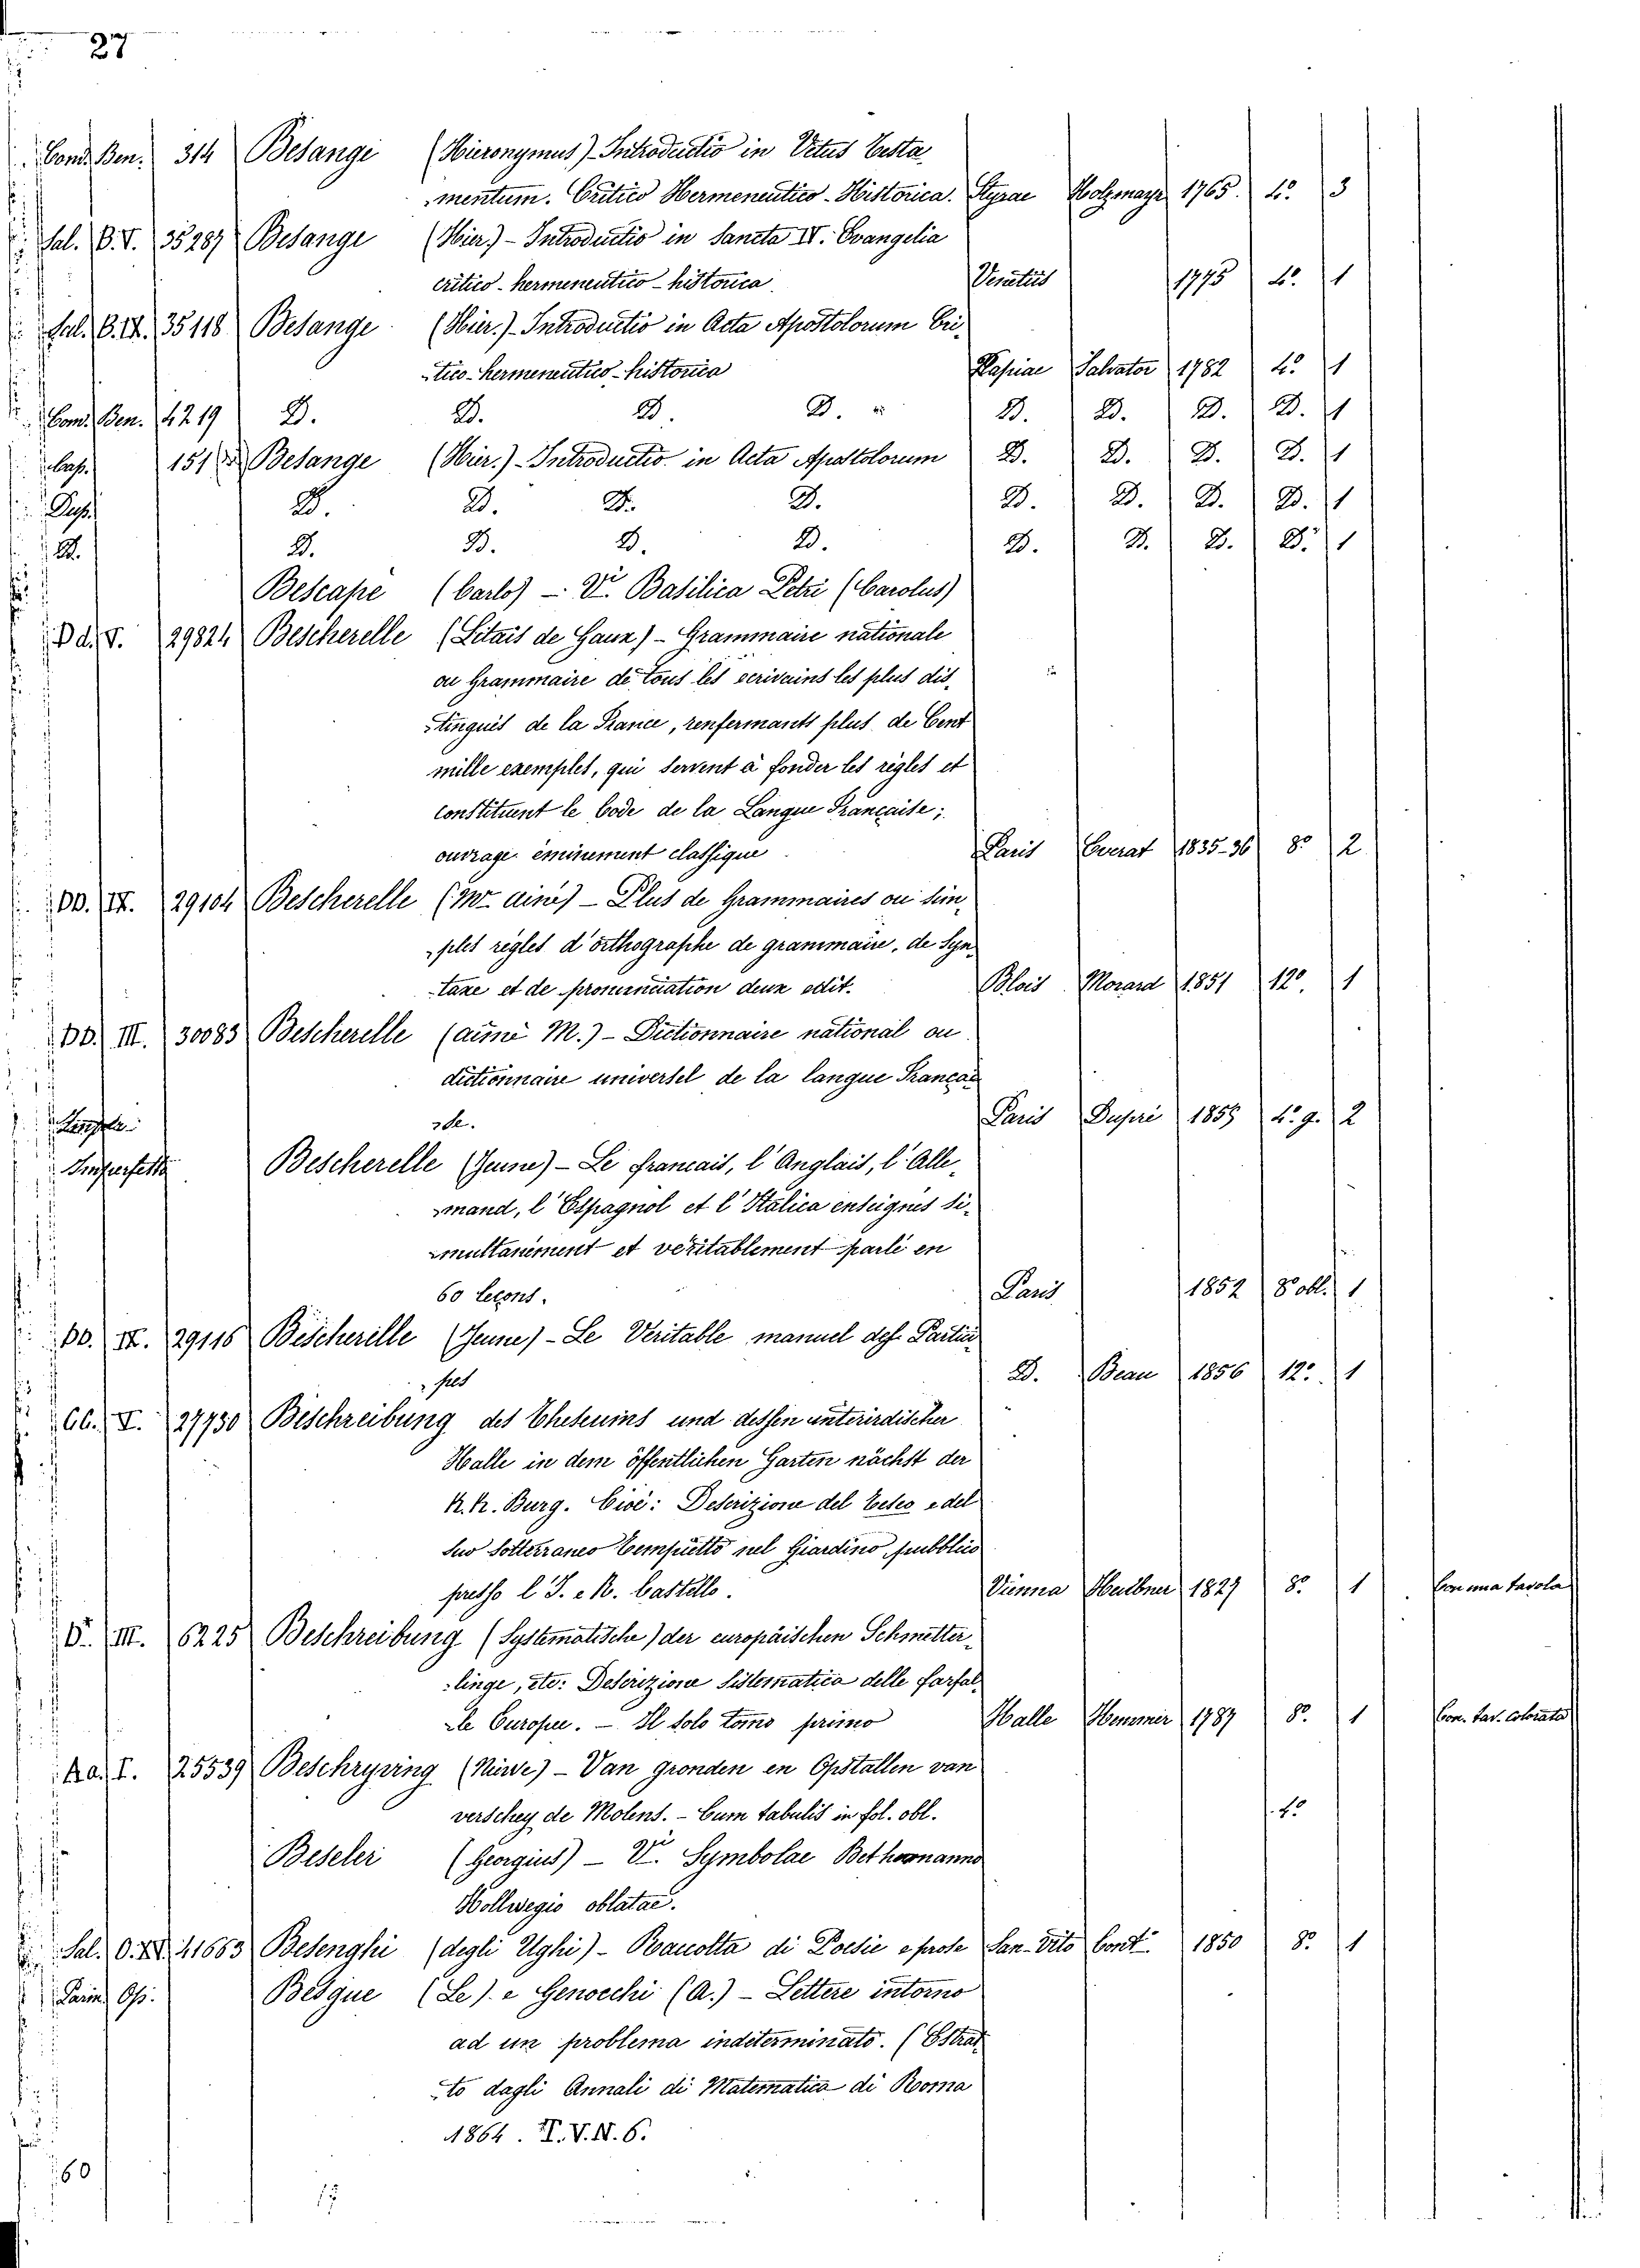 27
Cond. Ben. 314 Besange (Hieronymus) - Introductio in Vetus Testa-
mentum. Critico Hermeneutico - Historica. Styrae Holzmayr 1765. 4º 3
Sal. B. V. 35287 Besange (Hier.) - Introductio in Sancta IV. Evangelia
critico - hermeneutico - historica Venetiis 1775 4º 1
Sal. B. IX. 35118 Besange (Hier.) - Introductio in Acta Apostolorum Cri-
tico - hermeneutico - historica Papiae Salvator 1782 4º 1
Cond. Ben. 4219 D. D. D. D. D. D. D. D. 1
Cap. 151 Besange (Hier.) - Introductio in Acta Apostolorum D. D. D. D. 1
Dup. D. D. D. D. D. D. D. D. 1
D. D. D. D. D. D. D. D. D. 1
Bescape (Carlo) - Vi. Basilica Petri (Carolus)
D d. V. 29824 Bescherelle (Litais de Gaux) - Grammaire nationale
ou Grammaire de tous les ecrivains les plus dis-
tingués de la France, renfermants plus de Cent
mille exemples, qui servent à fonder les règles et
constituent le Code de la Langue Française;
ouvrage éminement classique Paris Everat 1835-36 8º 2
DD. IX. 29104 Bescherelle (Mr ainé) - Plus de Grammaires ou sim-
ples règles d'orthographe de grammaire, de Syn-
taxe et de prononciation deux edit. Blois Morard 1851 12º. 1
DD. III. 30083 Bescherelle (ainé M.) - Dictionnaire national ou
dictionnaire universel de la langue Françai-
se. Paris Dupri 1855 4º g. 2
Imperfetto Bescherelle (Jeune) - Le francais, l'Anglais, l'Alle-
mand, l'Espagnol et l'Italica enseignés si-
multanément et véritablement parlé en
60 leçons. Paris 1852 8º obl. 1
DD. IX. 29116 Bescherelle (Jeune) - Le Veritable manuel des Partici-
pes D. Beau 1856 12º. 1
Cc. I. 27730 Beschreibung des Theseums und dessen unterirdischer
Halle in dem öffentlichen Garten nächst der
k. k. Burg. Cioè: Descrizione del Teseo e del
suo Sotterraneo Tempietto nel Giardino pubblico
presso l' I. e R. Castello. Vienna Heubner 1827 8º 1 Con una tavola
V. III. 6225 Beschreibung (Systematische) der europäischen Schmetter-
linge, etc. Descrizione Sistematica delle farfal-
le Europee. - Il solo tomo primo Halle Hemmer 1787 8º. 1 Con. tav. colorate
Aa. I. 25539 Beschryving (Nieve) - Van gronden en Opstallen van
verschey de Molens. - Cum tabulis in fol. obl. 4º
Beseler (Georgius) - Vi. Symbolae Bethmanno
Hollwegio oblatae.
Sal. O. XV. 41663 Besenghi (degli Ughi) - Raccolta di Poesie e prose San-Vito Cont. 1850 8º 1
Parin. Op. Besgue (Le). e Genocchi (A.) - Lettere intorno
ad un problema indeterminato. (Estrat-
to dagli Annali di Matematica di Roma
1864. T. V. N. 6.
60
15